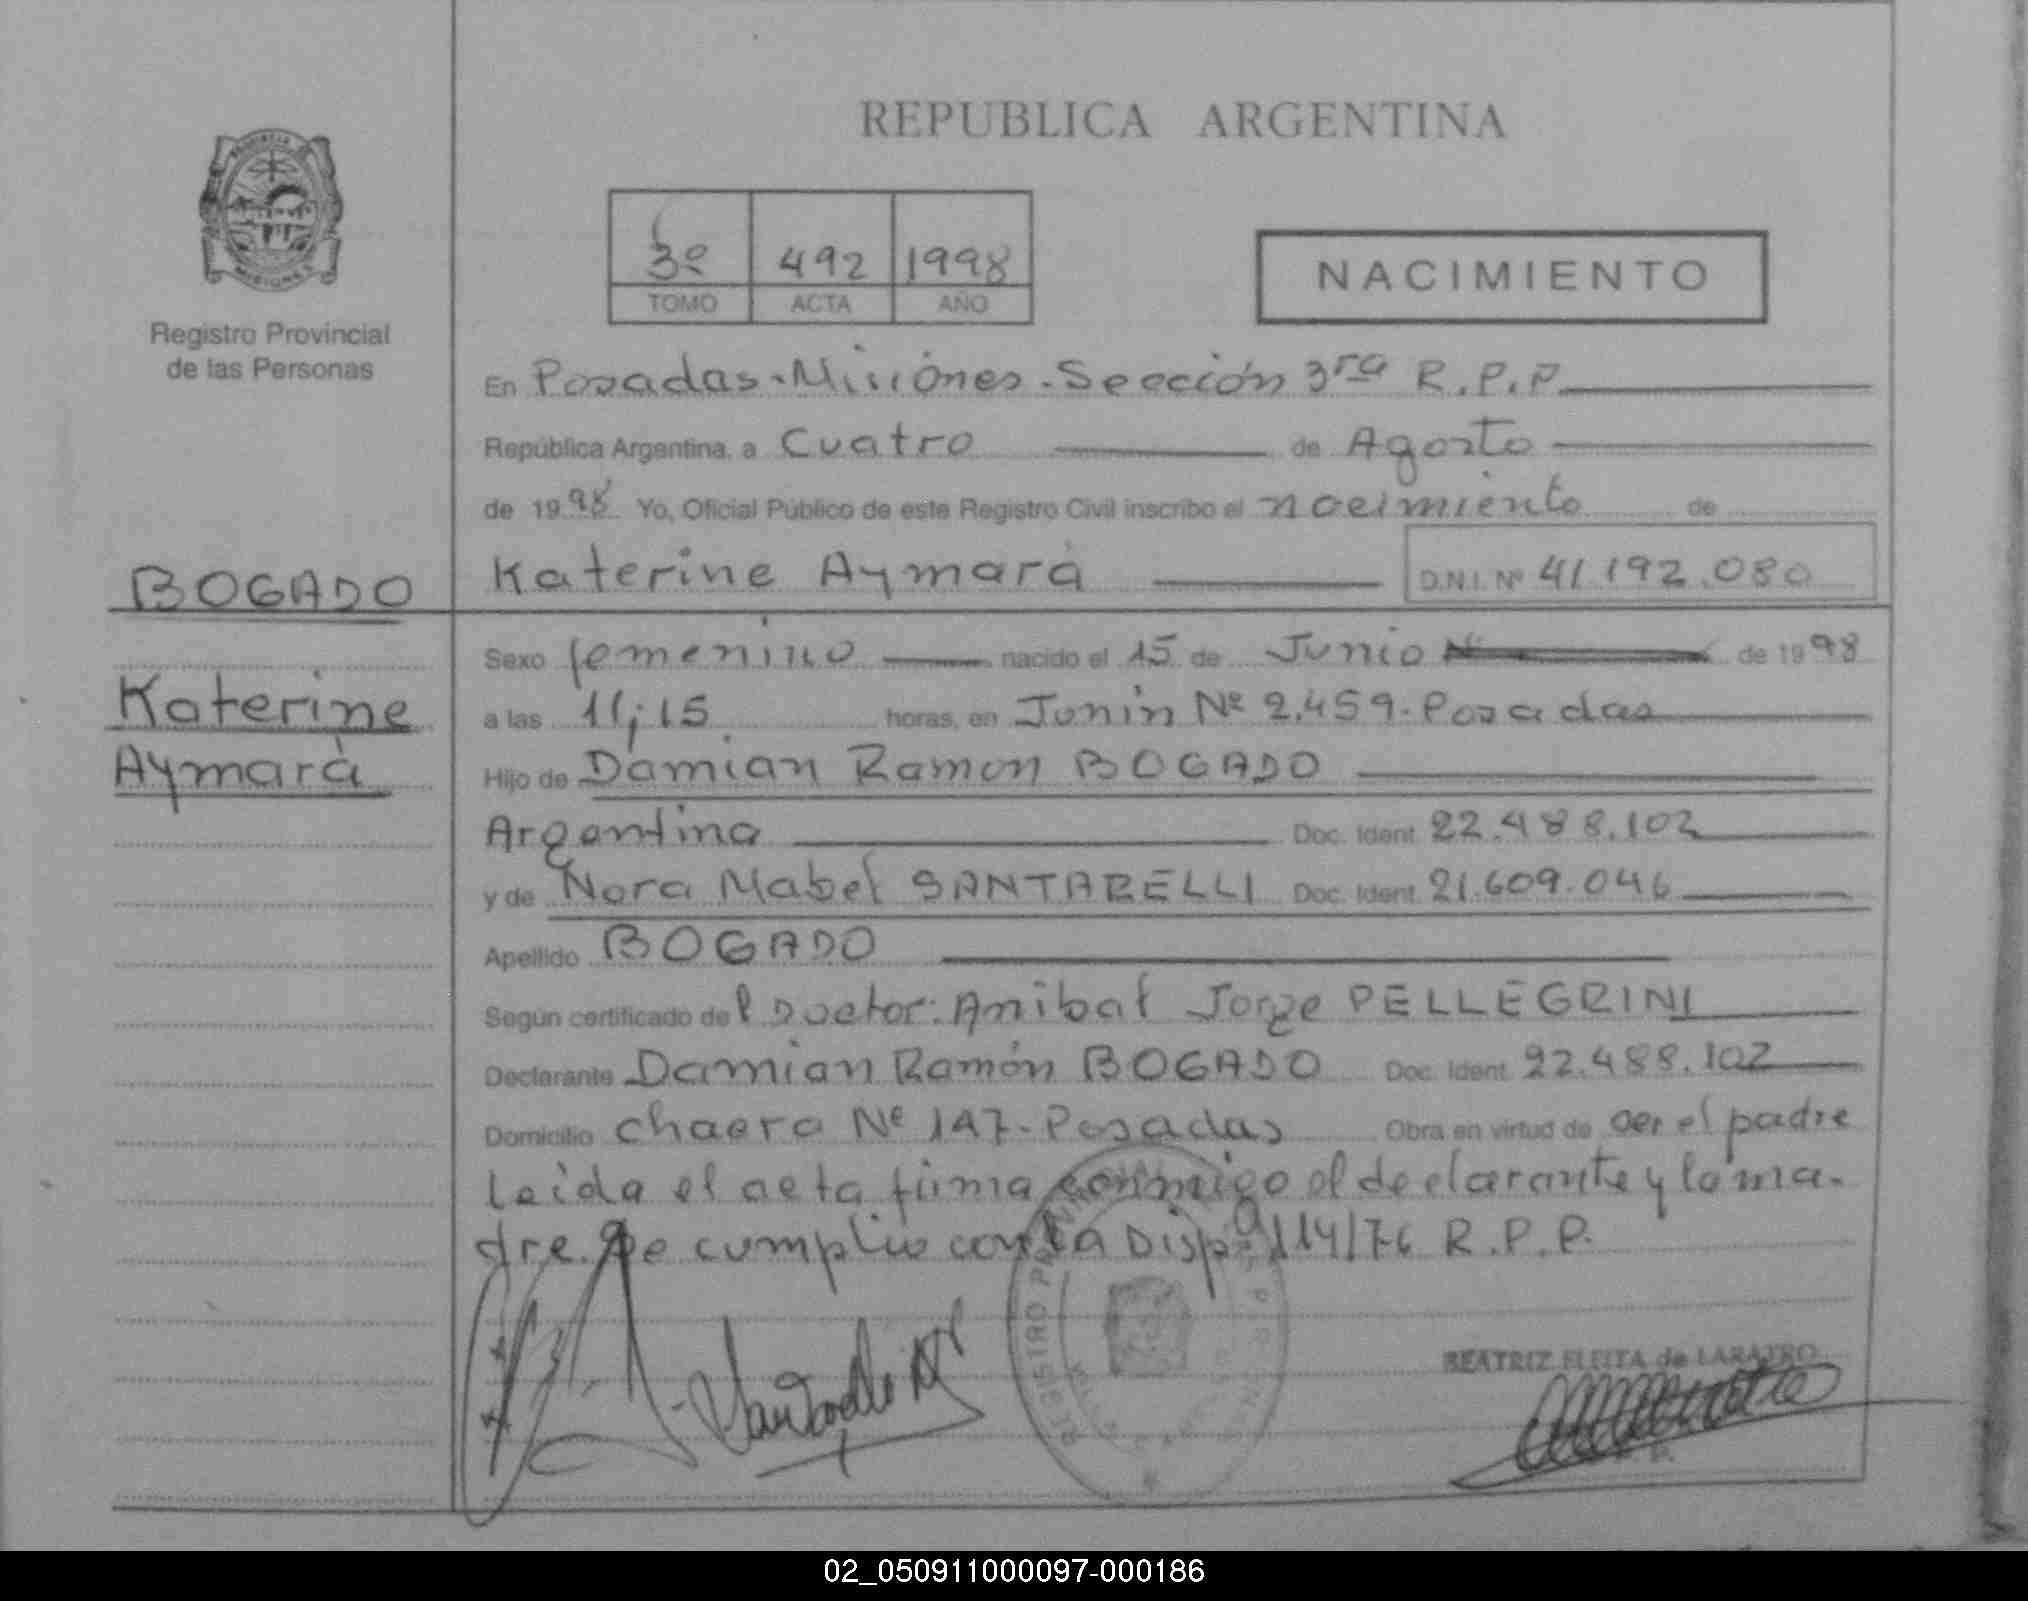 REPUBLICA ARGENTINA
PROVINCIA
MISIONES
Registro Provincial
de las Personas
3º 492 1998
TOMO ACTA AÑO
NACIMIENTO
En Posadas-Misiones-Sección 3ra R.P.P.
República Argentina, a Cuatro de Agosto
de 1998 Yo, Oficial Público de este Registro Civil inscribo el nacimiento de
BOGADO
Katerine Aymará D.N.I. Nº 41.192.080
Katerine
Aymará
Sexo femenino nacido el 15 de Junio de 1998
a las 11;15 horas, en Junin Nº 2.459-Posadas
Hijo de Damian Ramon BOGADO
Argentina Doc. Ident. 22.488.102
y de Nora Mabel SANTARELLI Doc. Ident. 21.609.046
Apellido BOGADO
Según certificado del Doctor: Anibal Jorge PELLEGRINI
Declarante Damian Ramón BOGADO Doc. Ident. 22.488.102
Domicilio Chacra Nº 147-Posadas Obra en virtud de ser el padre
Leida el acta firma conmigo el declarante y la ma-
dre. Se cumplio con la Disp. 114/76 R.P.P.
BEATRIZ FLEITA de LABATRO
02_050911000097-000186